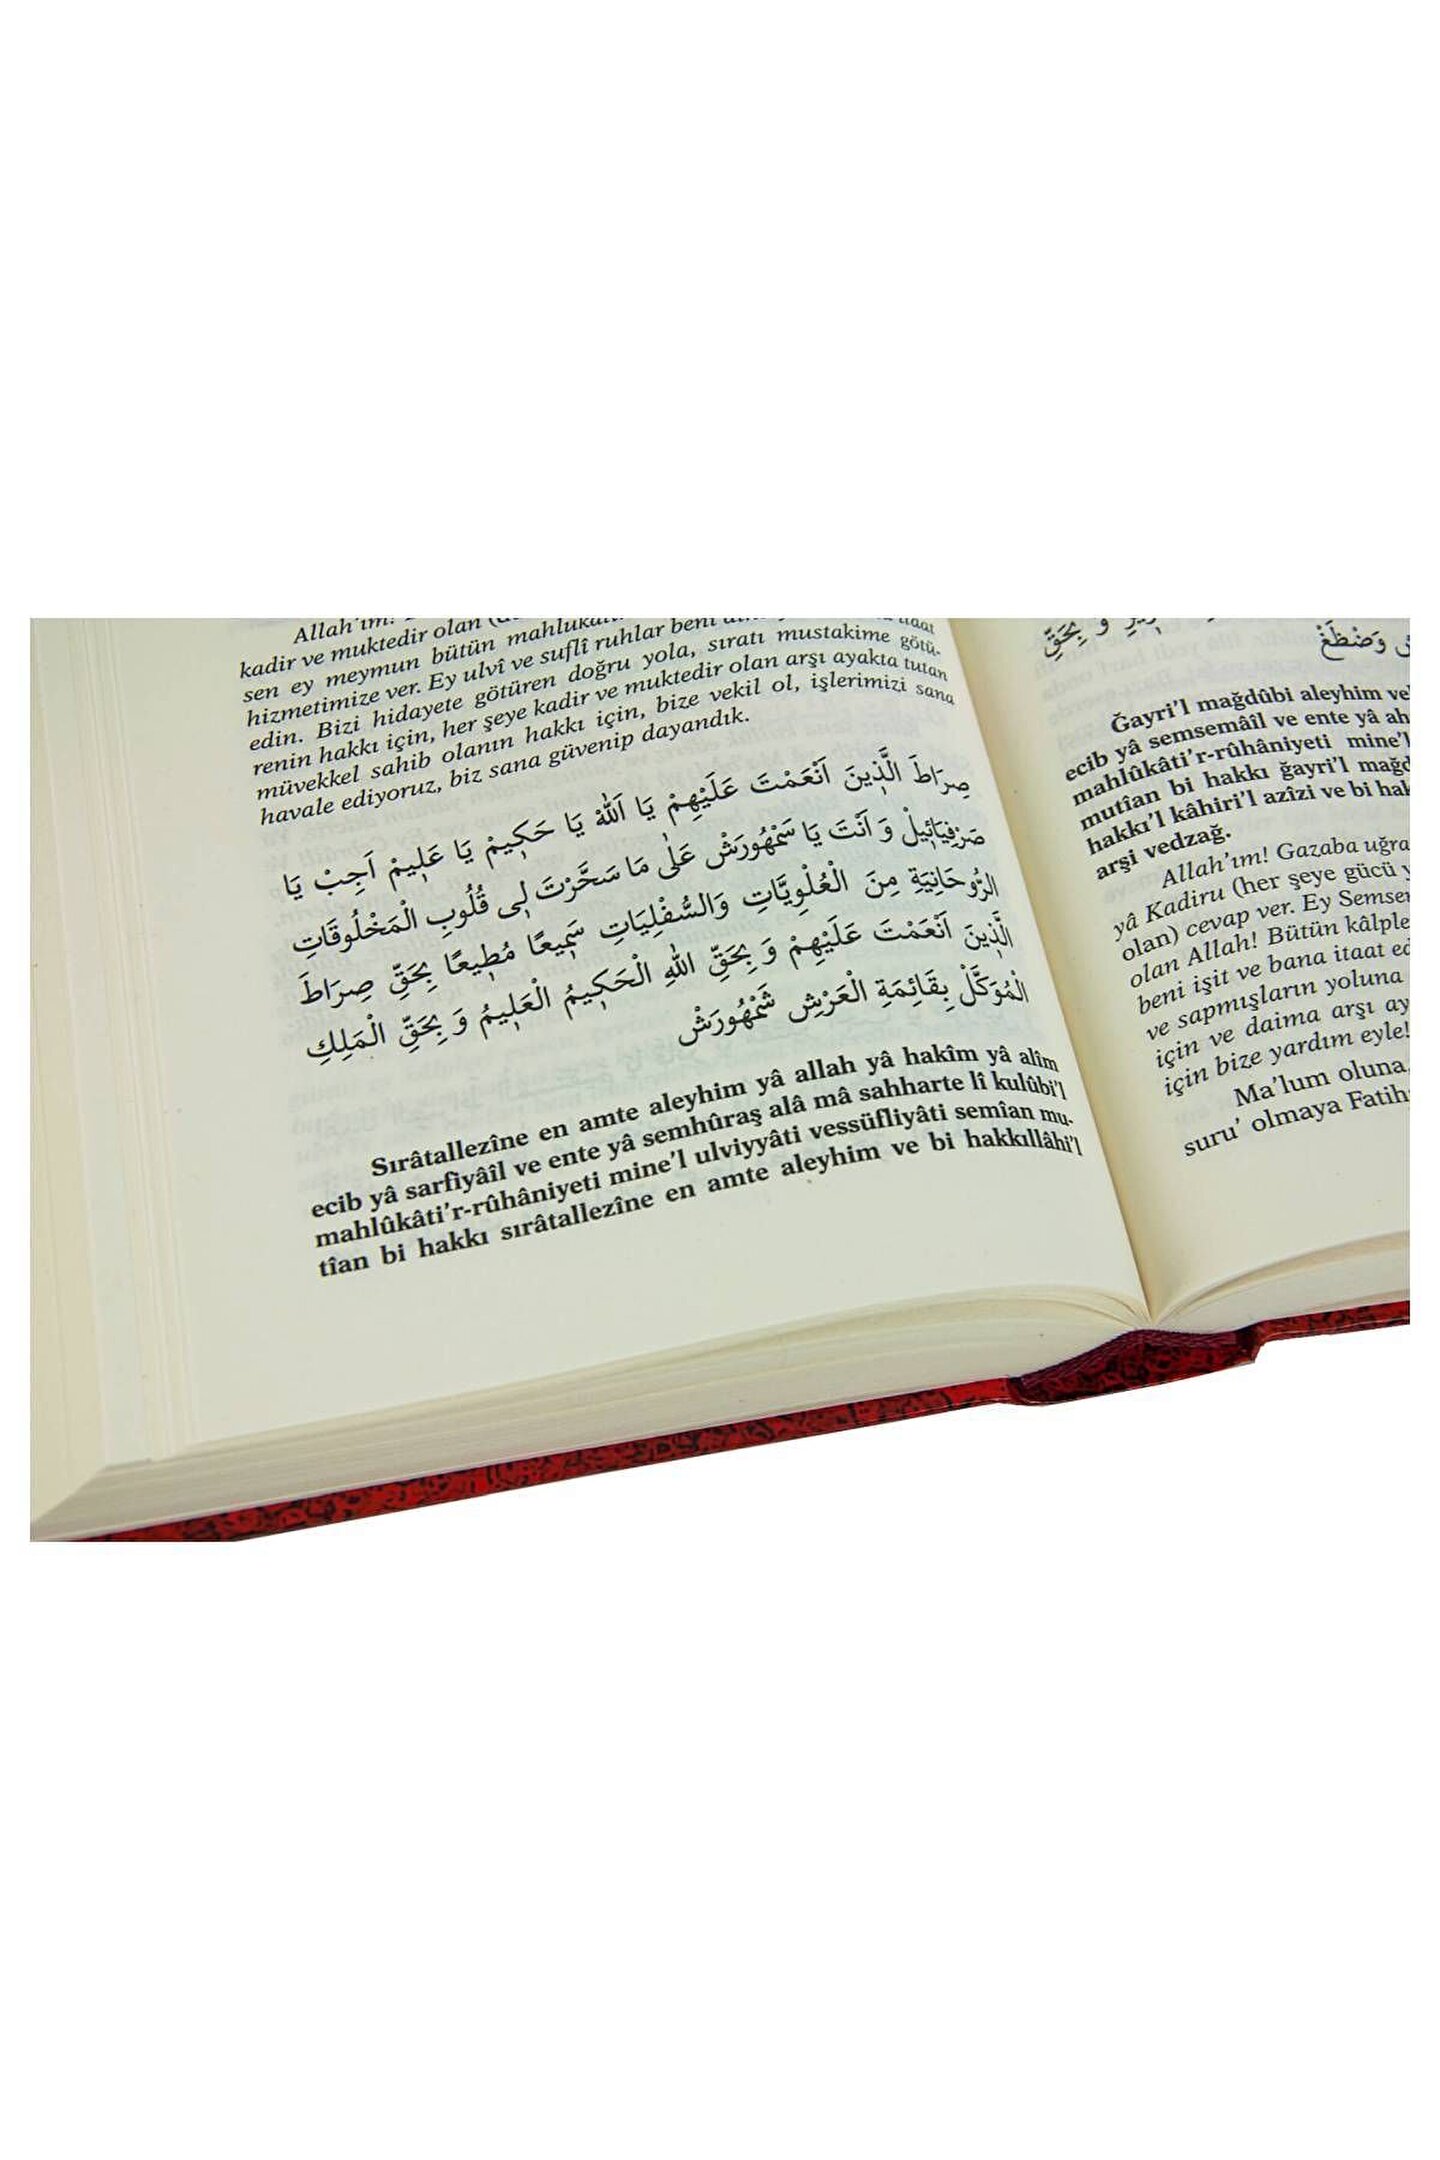 Allah'ım!
kadir ve muktedir olan
sen ey meymun bütün mahlukatı
hizmetimize ver. Ey ulvî ve suflî ruhlar beni itaat
edin. Bizi hidayete götüren doğru yola, sıratı mustakime götü-
renin hakkı için, her şeye kadir ve muktedir olan arşı ayakta tutan
müvekkel sahib olanın hakkı için, bize vekil ol, işlerimizi sana
havale ediyoruz, biz sana güvenip dayandık.
صِرَاطَ الَّذِينَ اَنْعَمْتَ عَلَيْهِمْ يَا اَللّٰهُ يَا حَكِيمْ يَا عَلِيمْ اَجِبْ يَا
صَرْفِيَائِيلْ وَ اَنْتَ يَا سَمْهُورَشْ عَلٰى مَا سَخَّرْتَ لِى قُلُوبِ الْمَخْلُوقَاتِ
الرُّوحَانِيَةِ مِنَ الْعُلْوِيَّاتِ وَالسُّفْلِيَاتِ سَمِيعًا مُطِيعًا بِحَقِّ صِرَاطَ
الَّذِينَ اَنْعَمْتَ عَلَيْهِمْ وَ بِحَقِّ اللّٰهِ الْحَكِيمُ الْعَلِيمُ وَ بِحَقِّ الْمَلِكِ
الْمُوَكَّلْ بِقَائِمَةِ الْعَرْشِ شَمْهُورَشْ
Sırâtallezîne en amte aleyhim yâ allah yâ hakîm yâ alîm
ecib yâ sarfiyâîl ve ente yâ semhûraş alâ mâ sahharte lî kulûbi'l
mahlûkâti'r-rûhâniyeti mine'l ulviyyâti vessüfliyâti semîan mu-
tîan bi hakkı sırâtallezîne en amte aleyhim ve bi hakkıllâhi'l
وَ بِحَقِّ
وَضْطَغْ
Ğayri'l mağdûbi aleyhim vel
ecib yâ semsemâîl ve ente yâ ah
mahlûkâti'r-rûhâniyeti mine'l
mutîan bi hakkı ğayri'l mağd
hakkı'l kâhiri'l azîzi ve bi hak
arşi vedzağ.
Allah'ım! Gazaba uğra
yâ Kadiru (her şeye gücü y
olan) cevap ver. Ey Semser
olan Allah! Bütün kâlple
beni işit ve bana itaat ed
ve sapmışların yoluna
için ve daima arşı ay
için bize yardım eyle!
Ma'lum oluna,
suru' olmaya Fatih